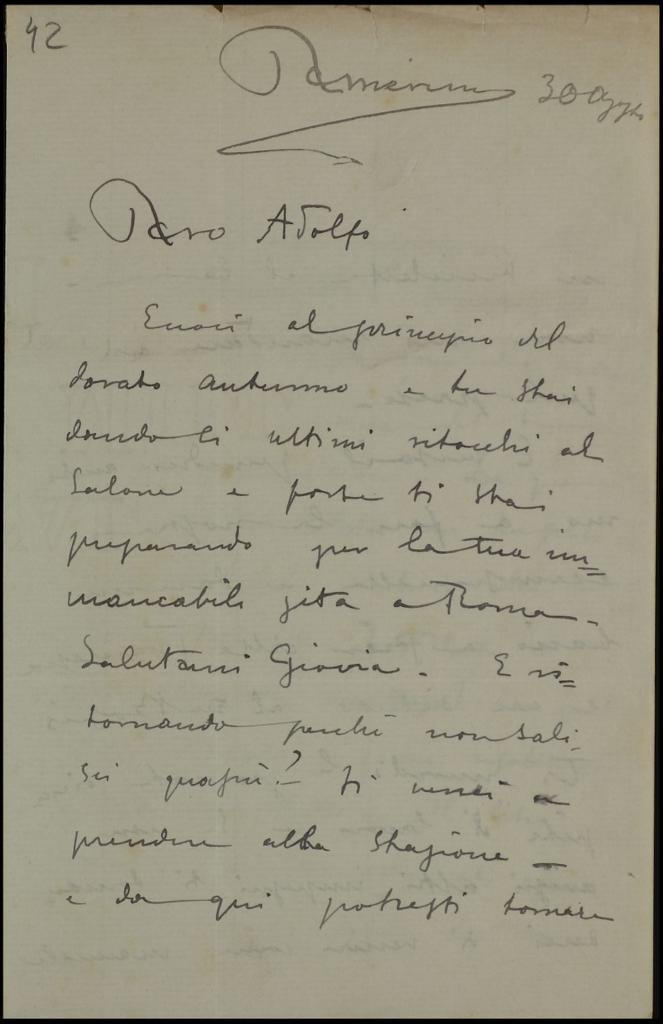 42
30 Agosto
Caro Adolfo
Eccoci al principio del
dorato autunno e tu stai
dando li ultimi ritocchi al
Salone e forse ti stai
preparando per la tua im=
mancabile gita a Roma -
Salutami Giovia. E ri=
tornando perché non sali-
sci quassù? Ti verrei a
prendere alla stazione -
e da qui potresti tornare